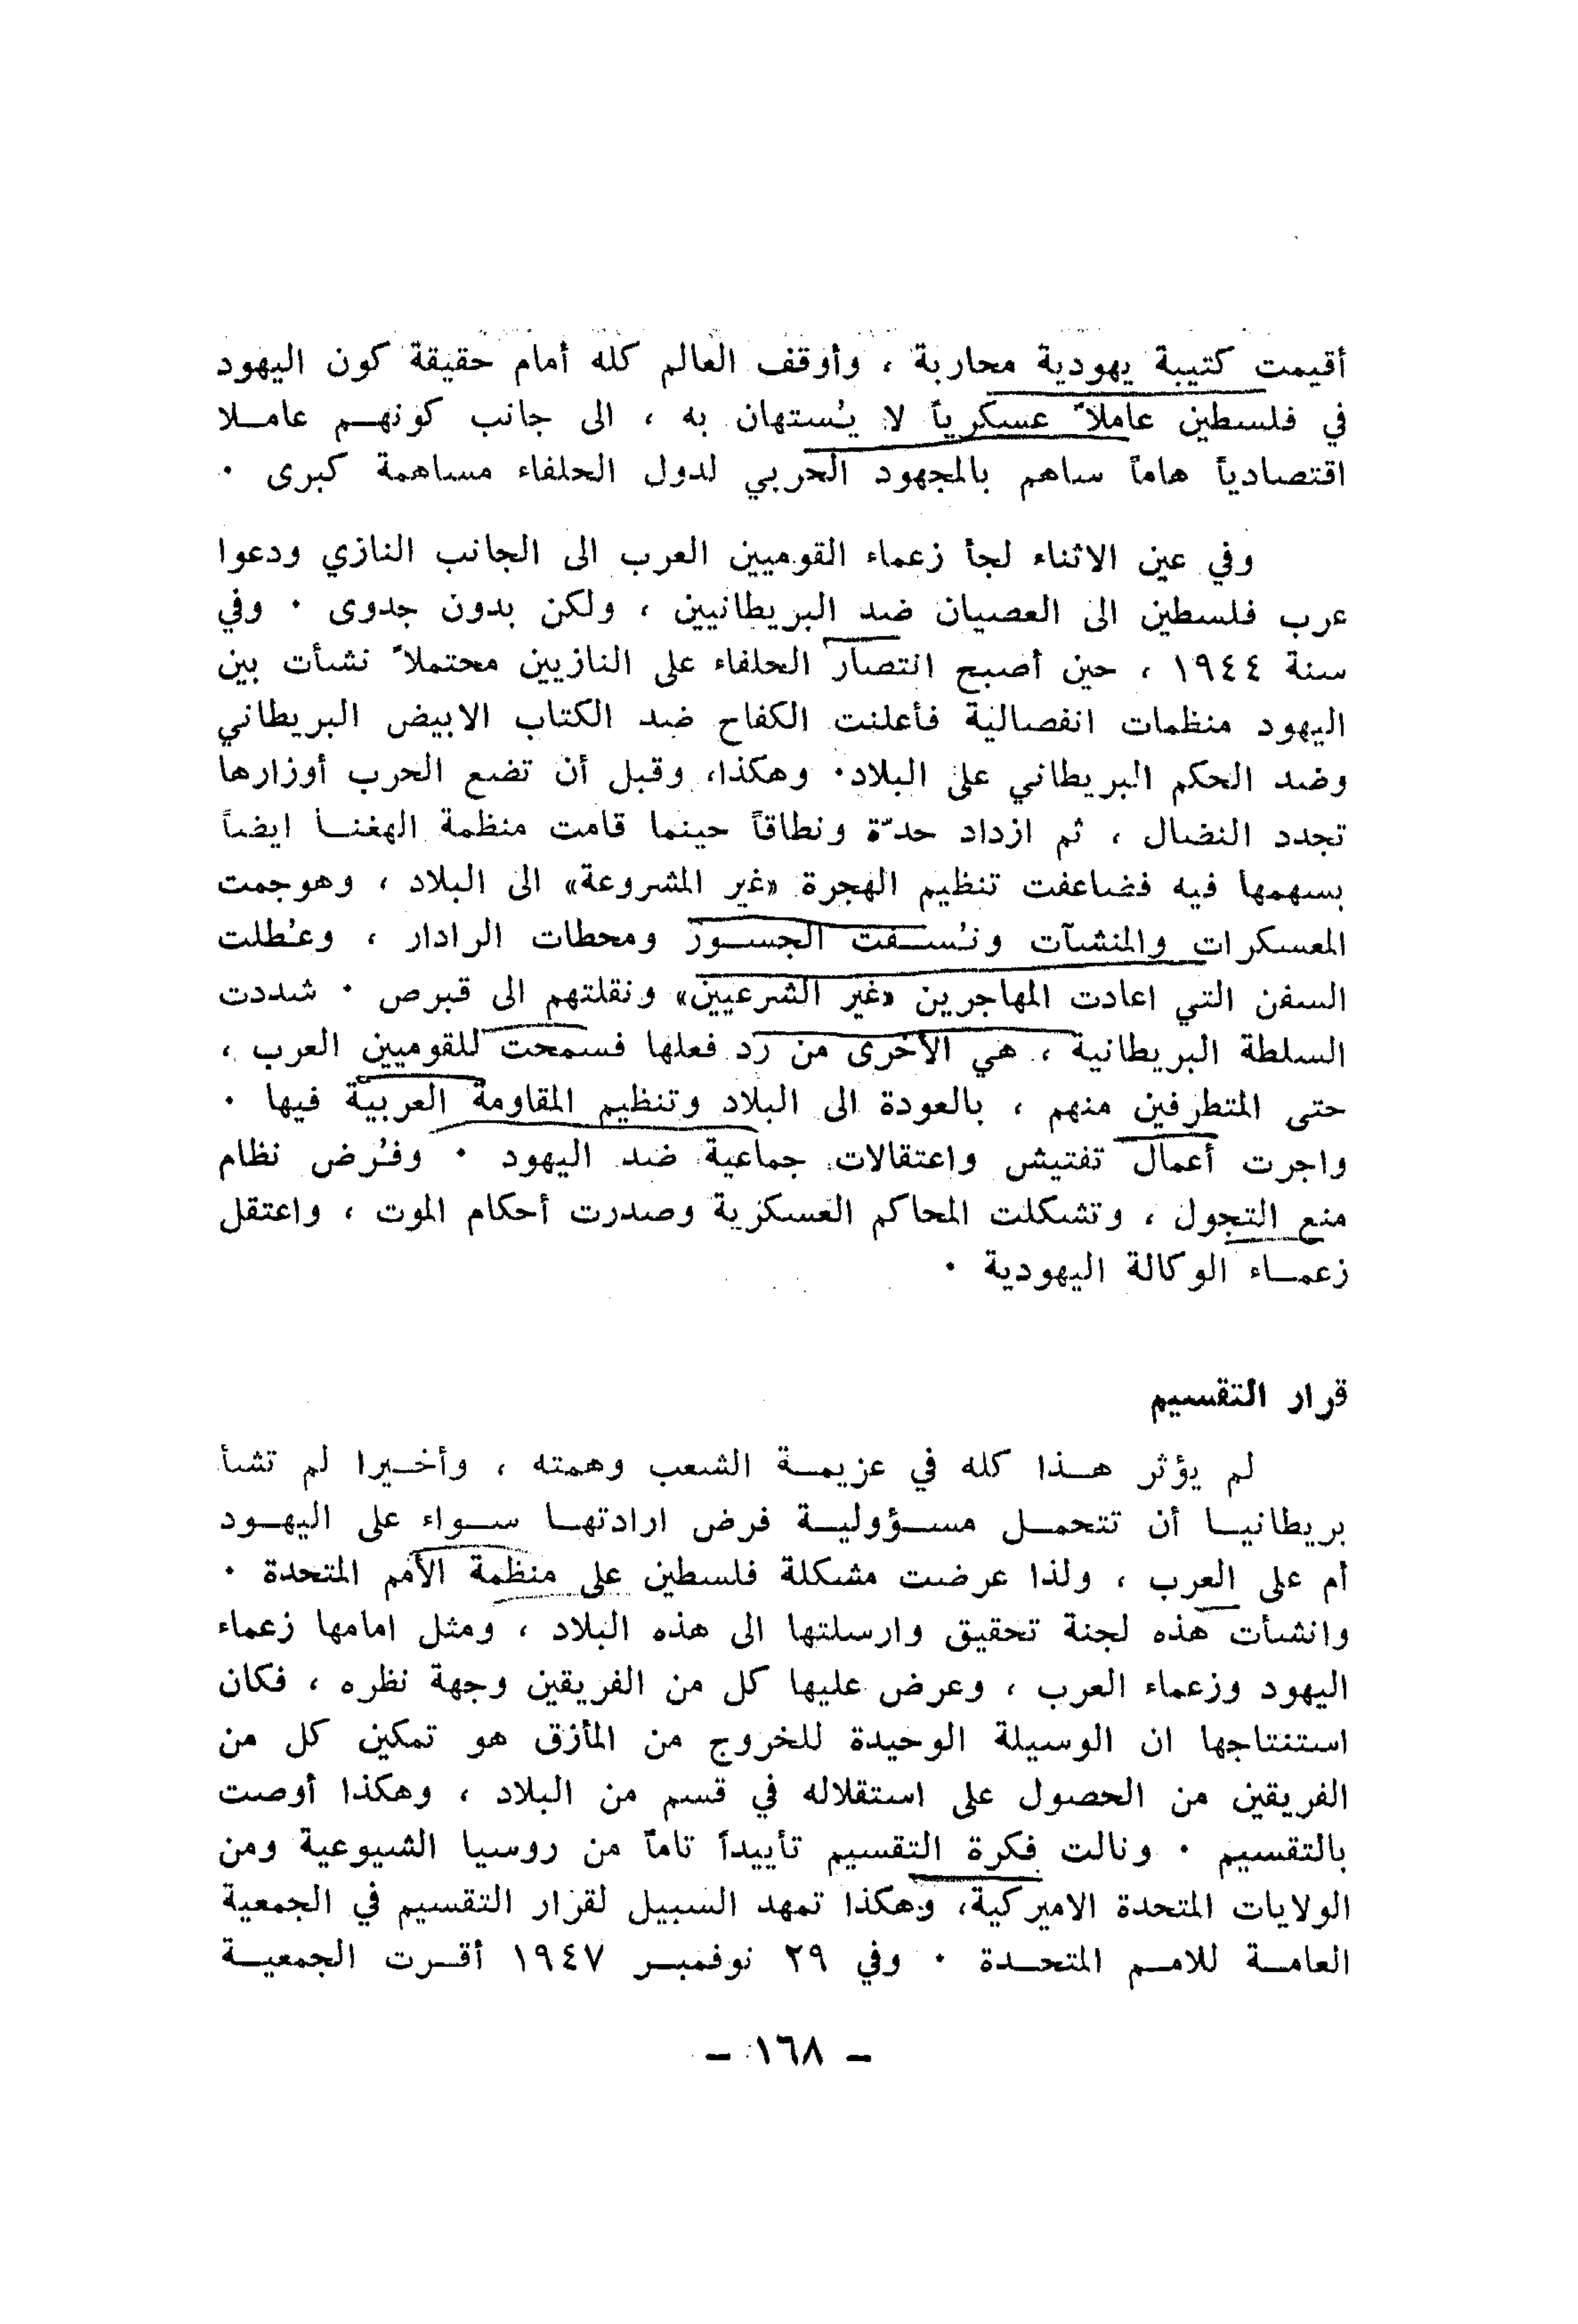 أقيمت كتيبة يهودية محاربة ، وأوقف العالم كله أمام حقيقة كون اليهود
في فلسطين عاملاً عسكرياً لا يُستهان به ، الى جانب كونهم عاملا
اقتصادياً هاماً ساهم بالمجهود الحربي لدول الحلفاء مساهمة كبرى ·
وفي عين الاثناء لجأ زعماء القوميين العرب الى الجانب النازي ودعوا
عرب فلسطين الى العصيان ضد البريطانيين ، ولكن بدون جدوى · وفي
سنة ١٩٤٤ ، حين أصبح انتصار الحلفاء على النازيين محتملاً نشأت بين
اليهود منظمات انفصالية فأعلنت الكفاح ضد الكتاب الابيض البريطاني
وضد الحكم البريطاني على البلاد· وهكذا، وقبل أن تضع الحرب أوزارها
تجدد النضال ، ثم ازداد حدّة ونطاقاً حينما قامت منظمة الهغنا ايضاً
بسهمها فيه فضاعفت تنظيم الهجرة «غير المشروعة» الى البلاد ، وهوجمت
المعسكرات والمنشآت ونُسفت الجسور ومحطات الرادار ، وعُطلت
السفن التي اعادت المهاجرين «غير الشرعيين» ونقلتهم الى قبرص · شددت
السلطة البريطانية ، هي الأخرى من رد فعلها فسمحت للقوميين العرب ،
حتى المتطرفين منهم ، بالعودة الى البلاد وتنظيم المقاومة العربية فيها ·
واجرت أعمال تفتيش واعتقالات جماعية ضد اليهود · وفُرض نظام
منع التجول ، وتشكلت المحاكم العسكرية وصدرت أحكام الموت ، واعتقل
زعماء الوكالة اليهودية ·
قرار التقسيم
لم يؤثر هذا كله في عزيمة الشعب وهمته ، وأخيرا لم تشأ
بريطانيا أن تتحمل مسؤولية فرض ارادتها سواء على اليهود
أم على العرب ، ولذا عرضت مشكلة فلسطين على منظمة الأمم المتحدة ·
وانشأت هذه لجنة تحقيق وارسلتها الى هذه البلاد ، ومثل امامها زعماء
اليهود وزعماء العرب ، وعرض عليها كل من الفريقين وجهة نظره ، فكان
استنتاجها ان الوسيلة الوحيدة للخروج من المأزق هو تمكين كل من
الفريقين من الحصول على استقلاله في قسم من البلاد ، وهكذا أوصت
بالتقسيم · ونالت فكرة التقسيم تأييداً تاماً من روسيا الشيوعية ومن
الولايات المتحدة الاميركية، وهكذا تمهد السبيل لقرار التقسيم في الجمعية
العامة للامم المتحدة · وفي ٢٩ نوفمبر ١٩٤٧ أقرت الجمعية
– ١٦٨ –